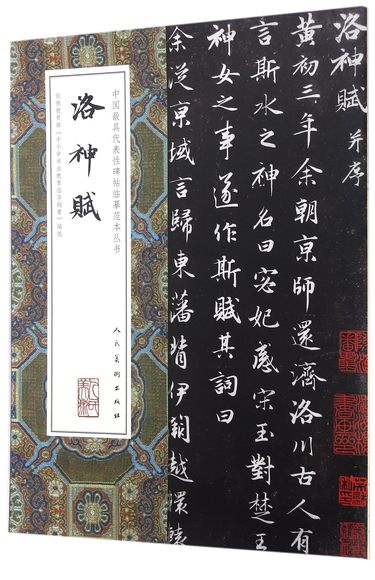 洛神賦 并序
黄初三年余朝京師還濟洛川古人有
言斯水之神名曰宓妃感宋玉對楚王
神女之事遂作斯賦其詞曰
余從京域言歸東藩背伊闕越轘轅
中国最具代表性碑帖临摹范本丛书
洛神賦
依据教育部《中小学书法教育指导纲要》编选
人民美術出版社